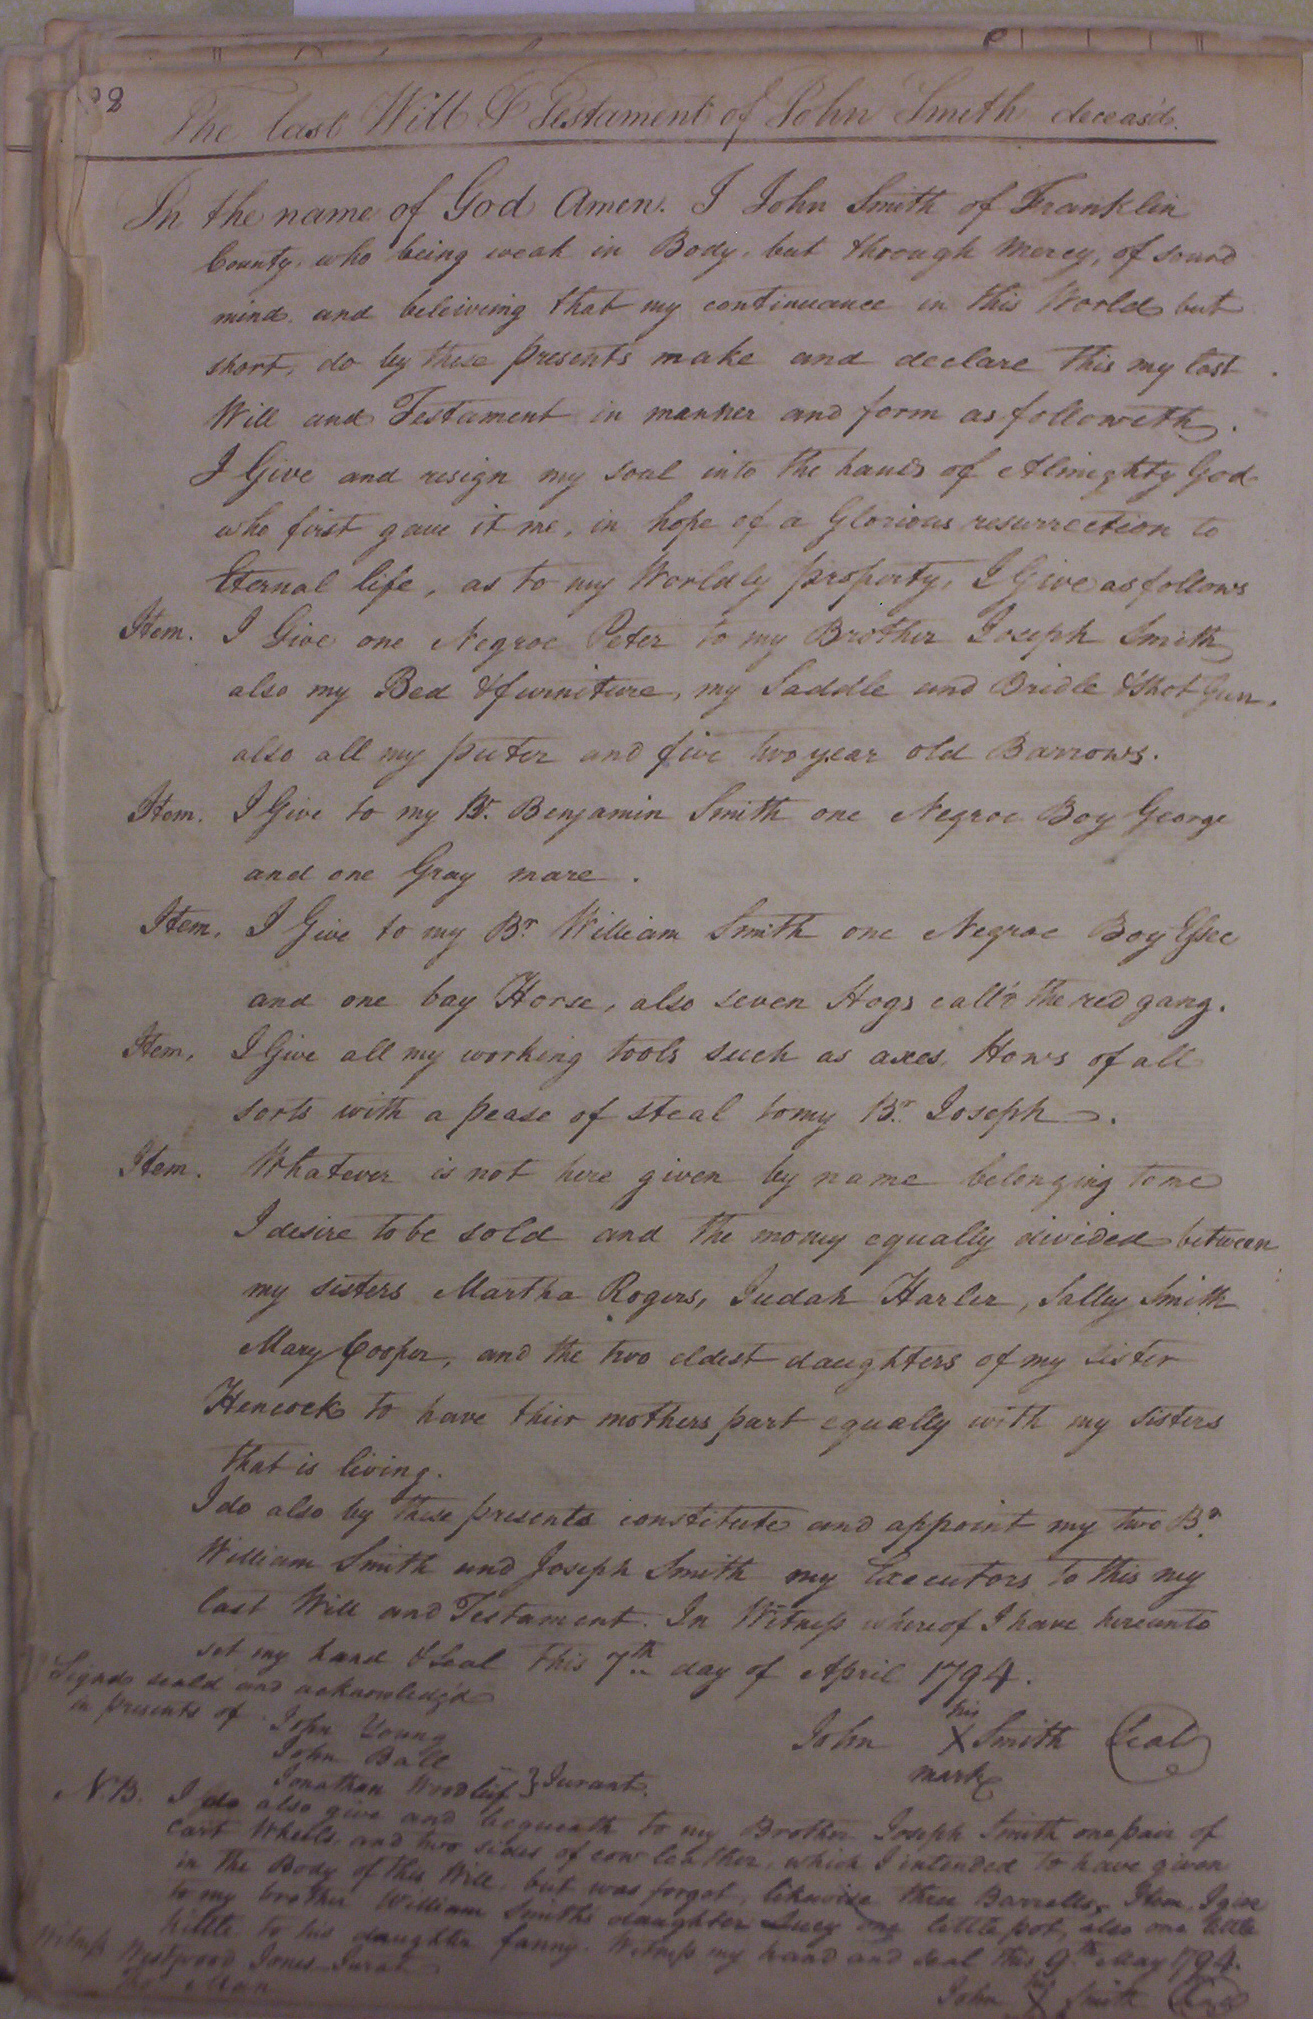 92
The last Will & Testament of John Smith deceas'd.
In the name of God Amen. I John Smith of Franklin
County, who being weak in Body, but through Mercy, of sound
mind and beleiveing that my continuance in this World but
short, do by these presents make and declare this my last
Will and Testament in manner and form as followeth.
I Give and resign my soul into the hands of Almighty God
who first gave it me, in hope of a Glorious resurrection to
Eternal life, as to my Worldly property, I Give as follows
Item. I Give one Negroe Peter to my Brother Joseph Smith
also my Bed & furniture, my Saddle and Bridle & Shot Gun.
also all my puter and five two year old Barrows.
Item. I Give to my Br. Benjamin Smith one Negroe Boy George
and one Gray mare.
Item. I Give to my Br. William Smith one Negroe Boy Essec
and one bay Horse, also seven Hogs call'd the red gang.
Item. I Give all my working tools such as axes, Hows of all
sorts with a pease of steal to my Br. Joseph.
Item. Whatever is not here given by name belonging to me
I desire to be sold and the money equally divided between
my sisters Martha Rogers, Judah Harler, Salley Smith
Mary Cooper, and the two eldest daughters of my sister
Hencock to have thier mothers part equally with my sisters
that is living.
I do also by these presents constitute and appoint my two Br.
William Smith and Joseph Smith my Executors to this my
last Will and Testament. In Witness whereof I have hereunto
set my hand & Seal this 7th day of April 1794.
Signd seald and acknowledg'd
in presents of
John Young
John Ball
Jonathan Woodlif } Jurant.
his
John X Smith Seal
mark
N.B. I do also give and bequeath to my Brother Joseph Smith one pair of
cart Wheels, and two sides of cow leather, which I intended to have given
in the Body of this Will, but was forgot, likewise three Barrells, Item, I give
to my brother William Smiths daughter Lucy one little pot, also one little
kittle to his daughter fanny. Witness my hand and seal this 9th May 1794.
Witness
Westwood Jones Jurat
Tho Man
John X Smith Seal